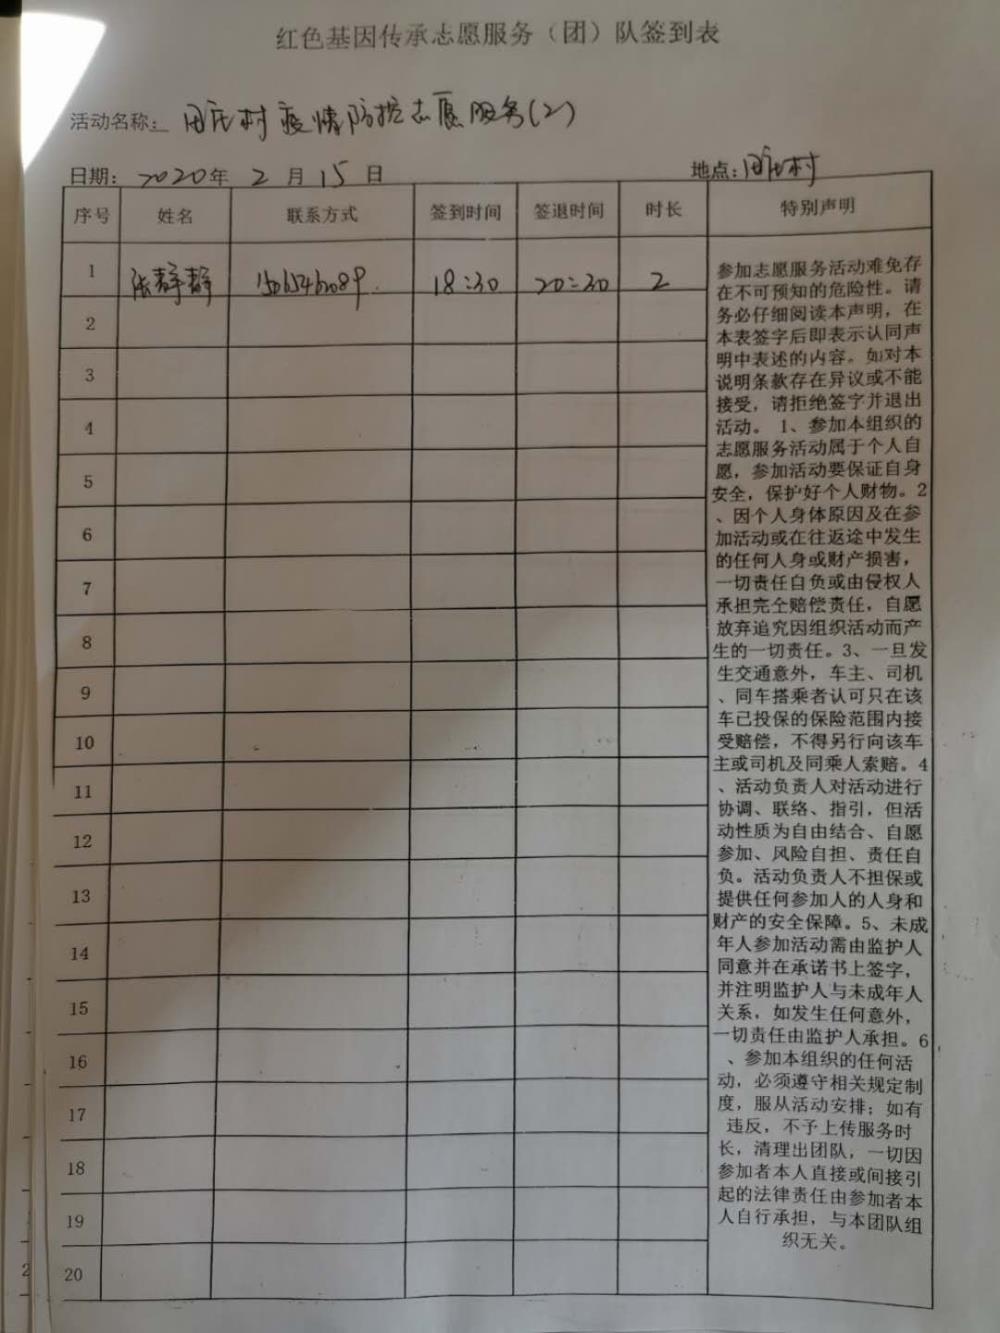 红色基因传承志愿服务（团）队签到表
活动名称： 田氏村疫情防控志愿服务(2)
日期： 2020年 2 月 15 日 地点：田氏村
序号 姓名 联系方式 签到时间 签退时间 时长 特别声明
1 张静静 18:30 20:30 2
2
3
4
5
6
7
8
9
10
11
12
13
14
15
16
17
18
19
20
参加志愿服务活动难免存
在不可预知的危险性。请
务必仔细阅读本声明，在
本表签字后即表示认同声
明中表述的内容。如对本
说明条款存在异议或不能
接受，请拒绝签字并退出
活动。 1、参加本组织的
志愿服务活动属于个人自
愿，参加活动要保证自身
安全，保护好个人财物。2
、因个人身体原因及在参
加活动或在往返途中发生
的任何人身或财产损害，
一切责任自负或由侵权人
承担完全赔偿责任，自愿
放弃追究因组织活动而产
生的一切责任。3、一旦发
生交通意外，车主、司机
、同车搭乘者认可只在该
车已投保的保险范围内接
受赔偿，不得另行向该车
主或司机及同乘人索赔。4
、活动负责人对活动进行
协调、联络、指引，但活
动性质为自由结合、自愿
参加、风险自担、责任自
负。活动负责人不担保或
提供任何参加人的人身和
财产的安全保障。5、未成
年人参加活动需由监护人
同意并在承诺书上签字，
并注明监护人与未成年人
关系，如发生任何意外，
一切责任由监护人承担。6
、参加本组织的任何活
动，必须遵守相关规定制
度，服从活动安排；如有
违反，不予上传服务时
长，清理出团队，一切因
参加者本人直接或间接引
起的法律责任由参加者本
人自行承担，与本团队组
织无关。